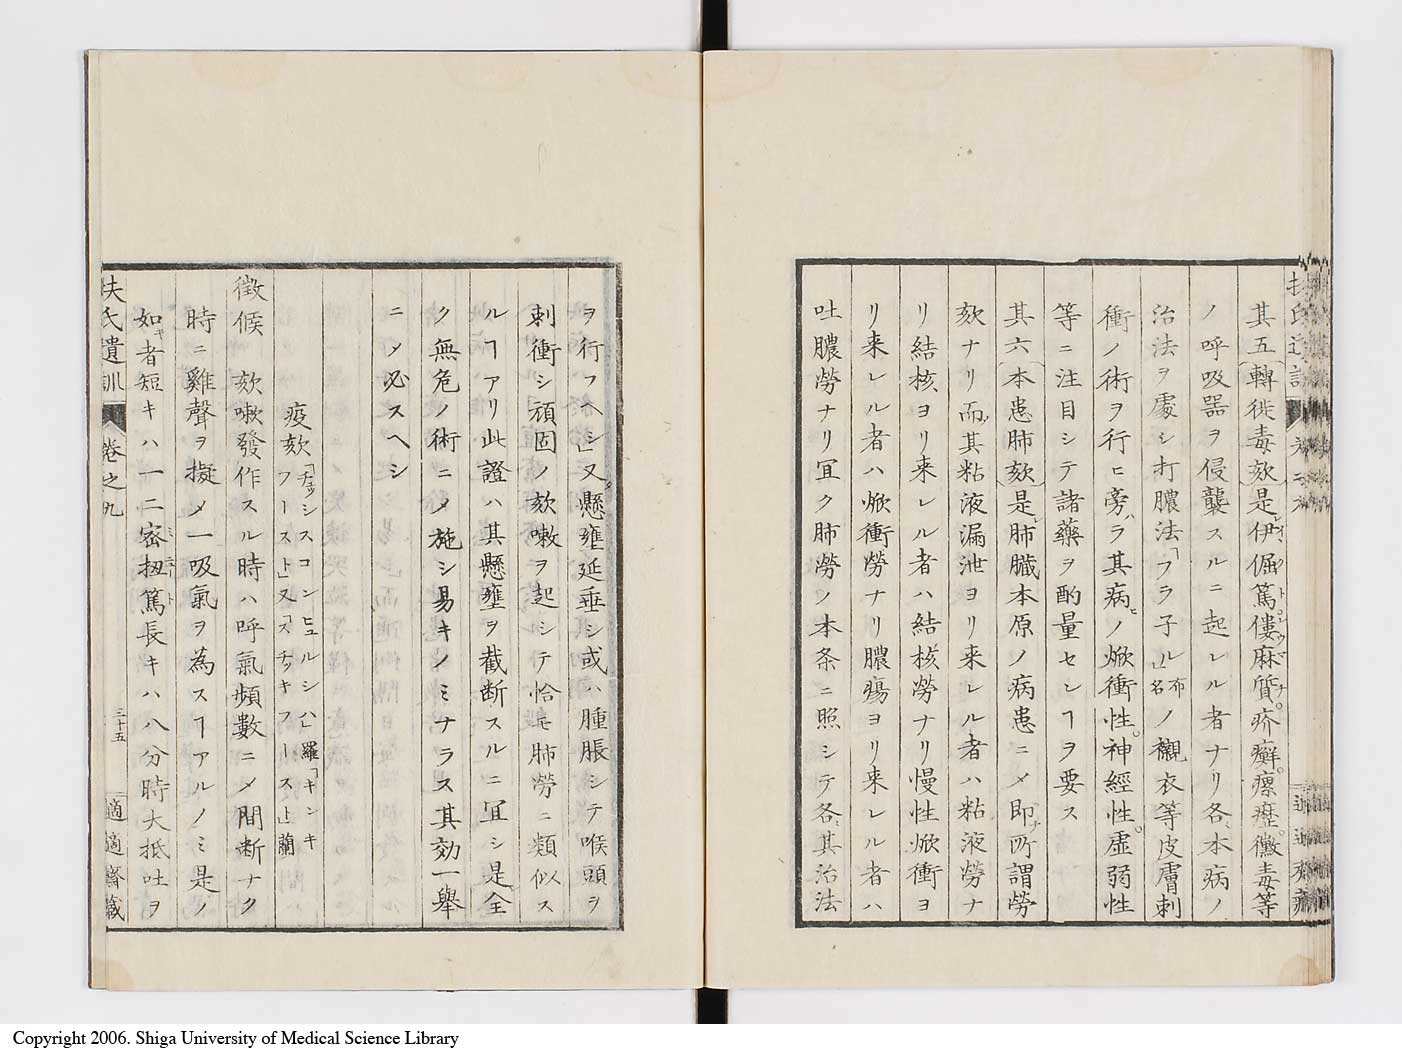 其五(轉徙毒欬)是伊倔篤僂麻質疥癬瘰癧黴毒等
ノ呼吸器ヲ侵襲スルニ起レル者ナリ各本病ノ
治法ヲ處シ打膿法「フラ子ル」布名ノ襯衣等皮膚刺
衝ノ術ヲ行ヒ旁ラ其病ノ焮衝性神經性虚弱性
等ニ注目シテ諸藥ヲ酌量セシヿヲ要ス
其六(本患肺欬)是肺臟本原ノ病患ニメ即所謂勞
欬ナリ而其粘液漏泄ヨリ来レル者ハ粘液勞ナ
リ結核ヨリ来レル者ハ結核勞ナリ慢性焮衝ヨ
リ来レル者ハ焮衝勞ナリ膿瘍ヨリ来レル者ハ
吐膿勞ナリ冝ク肺勞ノ本条ニ照シテ各其治法
ヲ行フヘシ」又懸壅延垂シ或ハ腫脹シテ喉頭ヲ
刺衝シ頑固ノ欬嗽ヲ起シテ恰モ肺勞ニ類似ス
ルヿアリ此證ハ其懸壅ヲ截断スルニ冝シ是全
ク無危ノ術ニメ施シ易キノミナラス其効一舉
ニメ必スヘシ
疫欬「チュッシスコンヒュルシハ」羅「キンキフースト」又「スチッキフースト」蘭
徴候 欬嗽發作スル時ハ呼氣頻數ニメ間断ナク
時ニ雞聲ヲ擬メ一吸氣ヲ為スヿアルノミ是ノ
如キ者短キハ一二密扭篤長キハ八分時大抵吐ヲ
扶氏遺訓 卷之九 三十五 適適齋藏